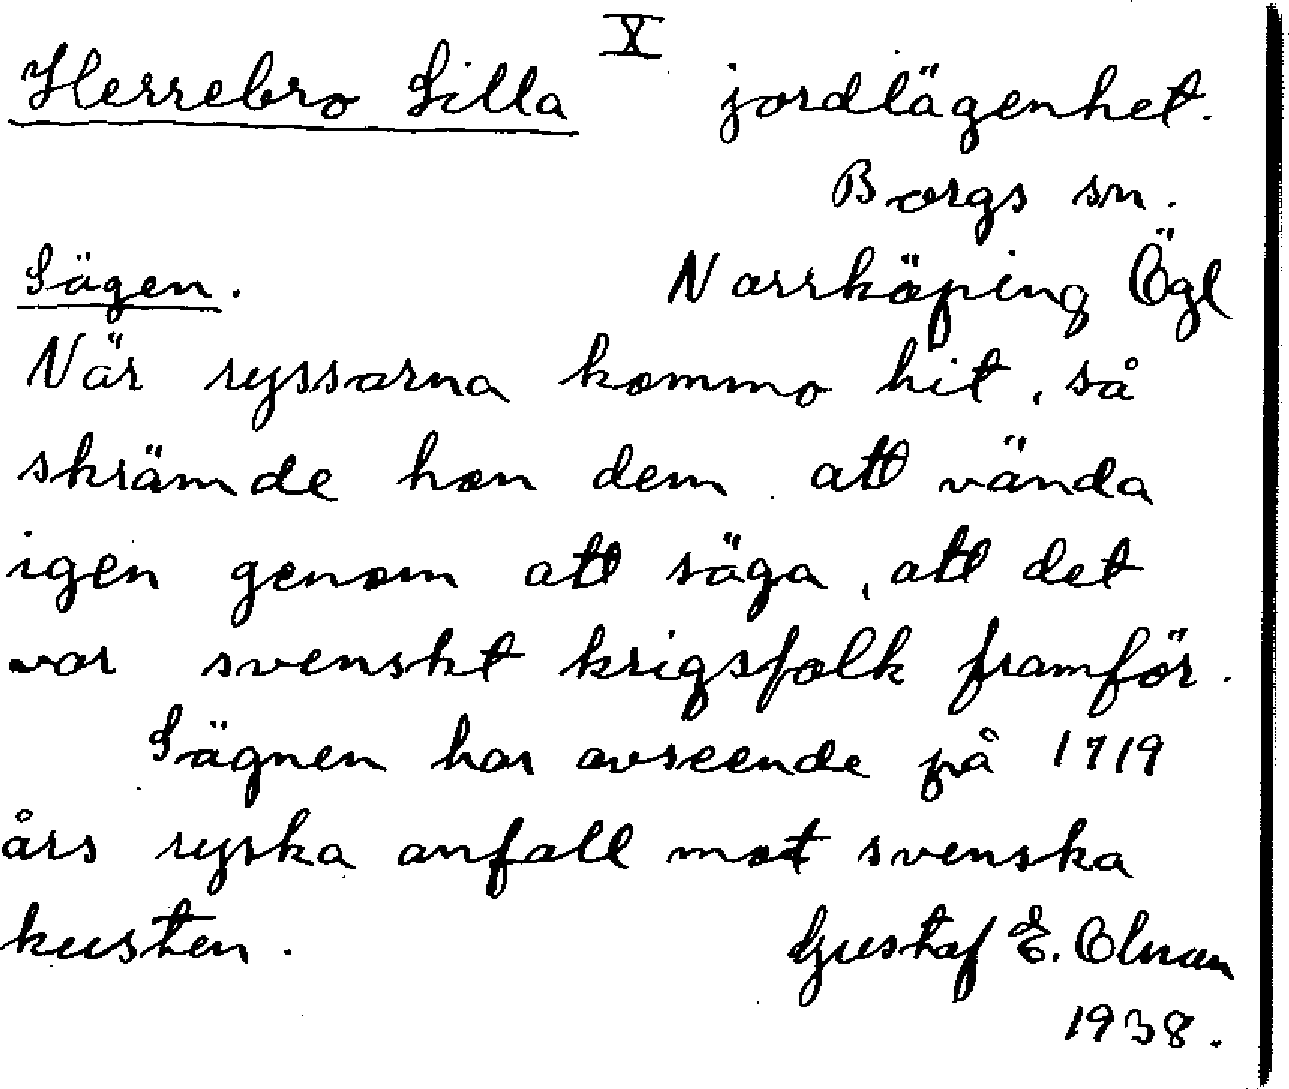 X
Herrebro Silla jordlägenhet.
Borgs sn.
Sägen. Norrköping Ögl
När ryssarna kommo hit, så
skrämde hon dem att vända
igen genom att säga, att det
var svenskt krigsfolk framför.
Sägnen har avseende på 1719
års ryska anfall mot svenska
kusten. Gustaf E.
1938.